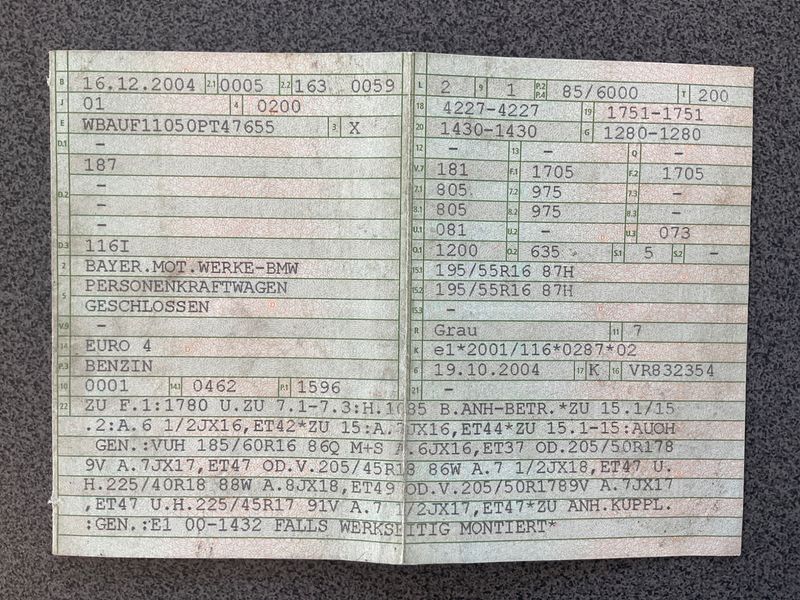 B 16.12.2004 2.1 0005 2.2 163 0059
J 01 4 0200
E WBAUF11050PT47655 3 X
D.1 –
187
–
D.2 –
–
D.3 116I
2 BAYER.MOT.WERKE-BMW
PERSONENKRAFTWAGEN
5 GESCHLOSSEN
V.9 –
14 EURO 4
P.3 BENZIN
10 0001 14.1 0462 P.1 1596
L 2 9 1 P.2 P.4 85/6000 T 200
18 4227-4227 19 1751-1751
20 1430-1430 G 1280-1280
12 – 13 – Q –
V.7 181 F.1 1705 F.2 1705
7.1 805 7.2 975 7.3 –
8.1 805 8.2 975 8.3 –
U.1 081 U.2 – U.3 073
O.1 1200 O.2 635 S.1 5 S.2 –
15.1 195/55R16 87H
15.2 195/55R16 87H
15.3 –
R Grau 11 7
K e1*2001/116*0287*02
6 19.10.2004 17 K 16 VR832354
21 –
22 ZU F.1:1780 U.ZU 7.1-7.3:H.1085 B.ANH-BETR.*ZU 15.1/15
.2:A.6 1/2JX16,ET42*ZU 15:A.7JX16,ET44*ZU 15.1-15:AUCH
GEN.:VUH 185/60R16 86Q M+S A.6JX16,ET37 OD.205/50R178
9V A.7JX17,ET47 OD.V.205/45R18 86W A.7 1/2JX18,ET47 U.
H.225/40R18 88W A.8JX18,ET49 OD.V.205/50R1789V A.7JX17
,ET47 U.H.225/45R17 91V A.7 1/2JX17,ET47*ZU ANH.KUPPL.
:GEN.:E1 00-1432 FALLS WERKSEITIG MONTIERT*